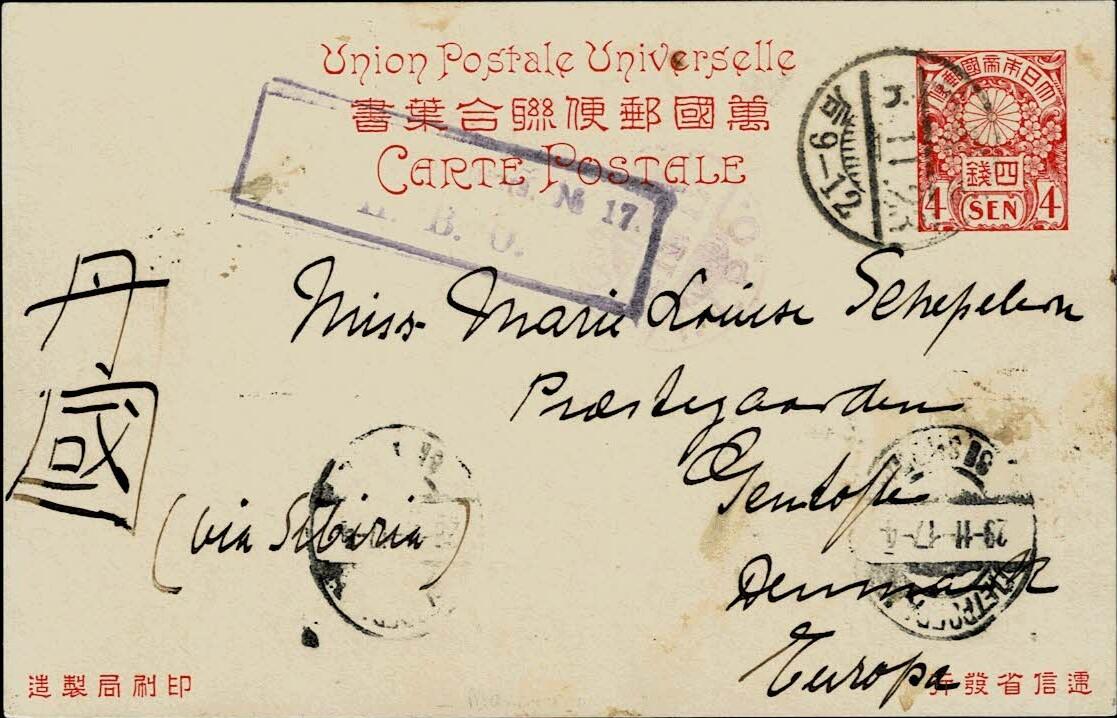 Union Postale Universelle
書葉合聯便郵國萬
CARTE POSTALE
便郵國帝本日大
四錢
4 SEN 4
6.11.23
后9-12
№ 17.
B. O.
Miss Marie Louise Schepelern
Præstegaarden
Gentofte
Denmark
Europa
丹國
(via Sibiria)
28-11-17-4
造製局刷印
行發省信遞